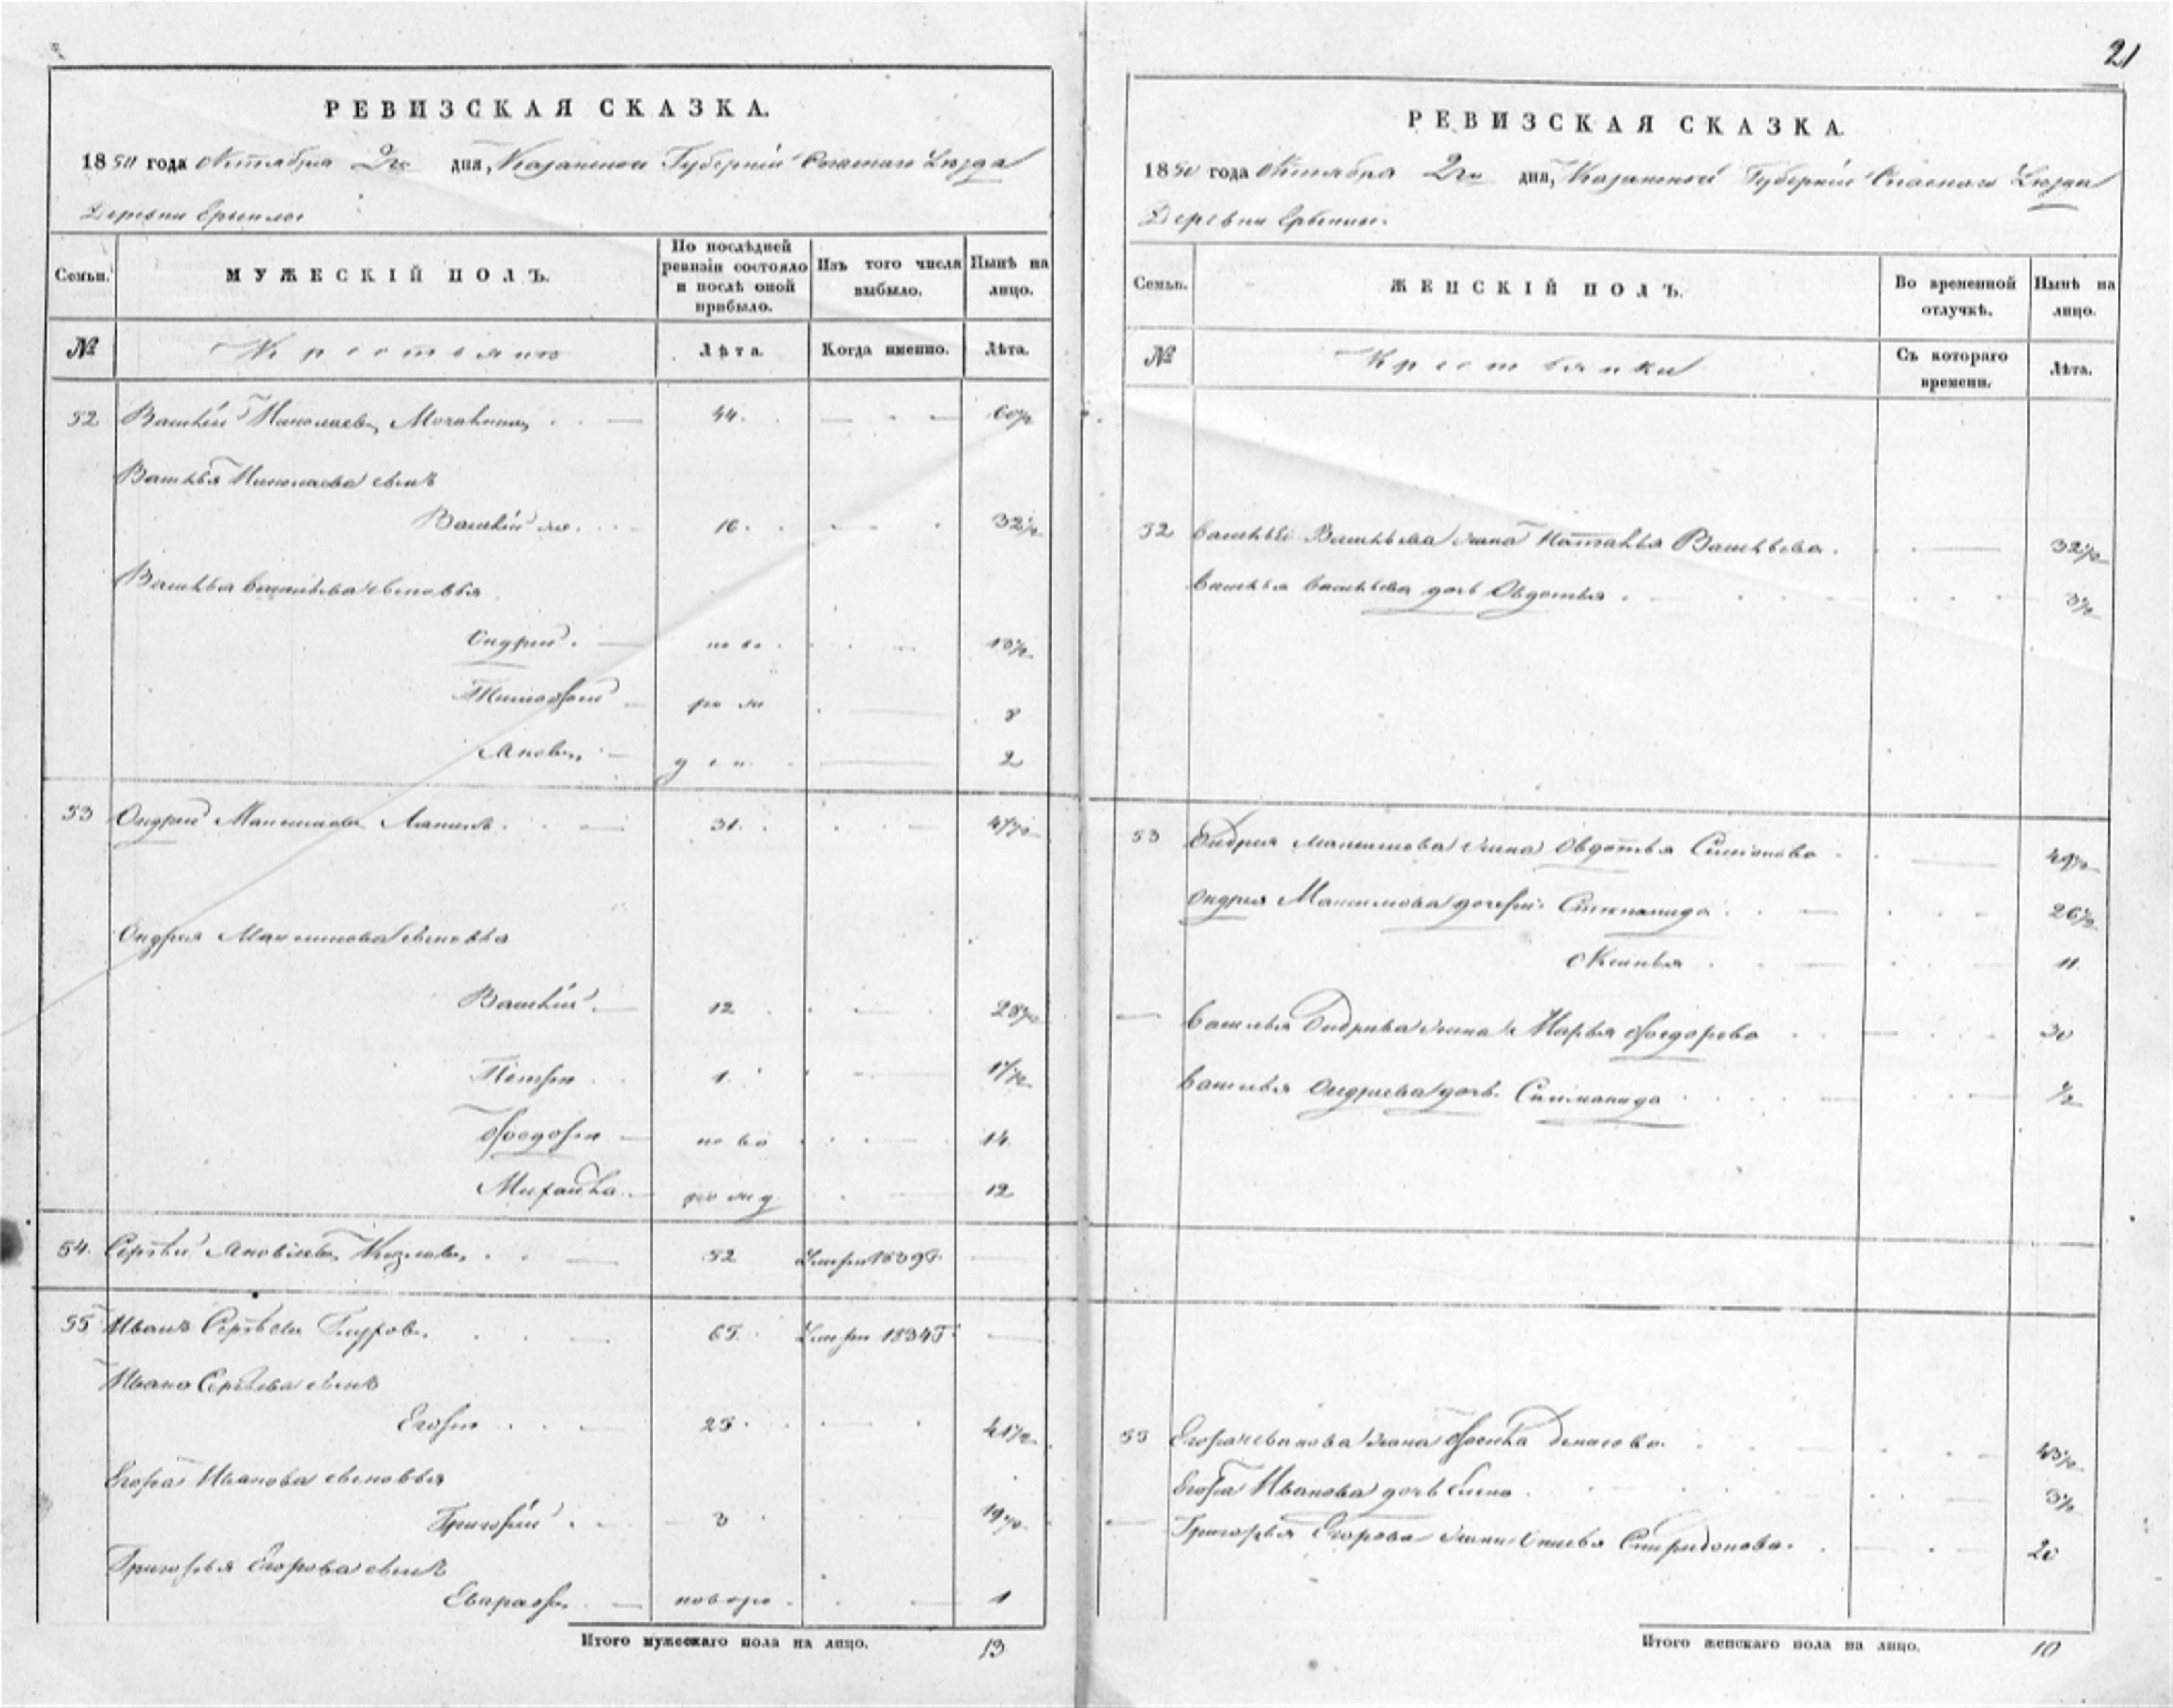 21
РЕВИЗСКАЯ СКАЗКА.
1850 года Октября 2го дня, Казанской Губерніи Спаскаго Уѣзда
Деревни
Семьи.
МУЖЕСКІЙ ПОЛЪ.
По послѣдней ревизіи состояло и послѣ оной прибыло.
Изъ того числа выбыло.
Нынѣ на лицо.
№
Крестьяне
Лѣта.
Когда именно.
Лѣта.
52 Василій Николаевъ 44. 60½
Василья Николаева сынъ
Василій 16. 32½
Василья Васильева сыновья
Ондрей. ново 13½
Тимофей ро ж 8
Яковъ, д ен. 2
53 Ондрей Максимовъ 31. 47½
Ондрея Максимова сыновья
Василій 12 28½
Петръ 1. 17½
Ѳедоръ ново 14
Михайла рожд 12
54. Сергѣй Яковлевъ Козловъ 52 Умеръ 1839 г.
55 Иванъ Сергѣевъ 65. Умеръ 1834 г.
Ивана Сергѣева сынъ
Егоръ 25. 41½
Егора Иванова сыновья
Григорій 3 19½
Григорья Егорова сынъ
новоро 1
Итого мужескаго пола на лицо. 13
РЕВИЗСКАЯ СКАЗКА.
1850 года Октября 2го дня, Казанской Губерніи Спаскаго Уѣзда
Деревни
Семьи.
ЖЕНСКІЙ ПОЛЪ.
Во временной отлучкѣ.
Нынѣ на лицо.
№
Крестьянки
Съ котораго времени.
Лѣта.
52 Василья Васильева жена Наталья Васильева. 32½
Василья Васильева дочь Овдотья 3½
53 Ондрея Максимова жена Овдотья Симионова 49½
Ондрея Максимова дочери Степанида 26½
Оксинья 11
Василья Ондриева жена Марья Ѳедорова 30
Василья Ондриева дочь ½
55 Егора Иванова жена Денисова 43½
Егора Иванова дочь Елена 3½
Григорья Егорова жена Спиридонова. 20
Итого женскаго пола на лицо. 10